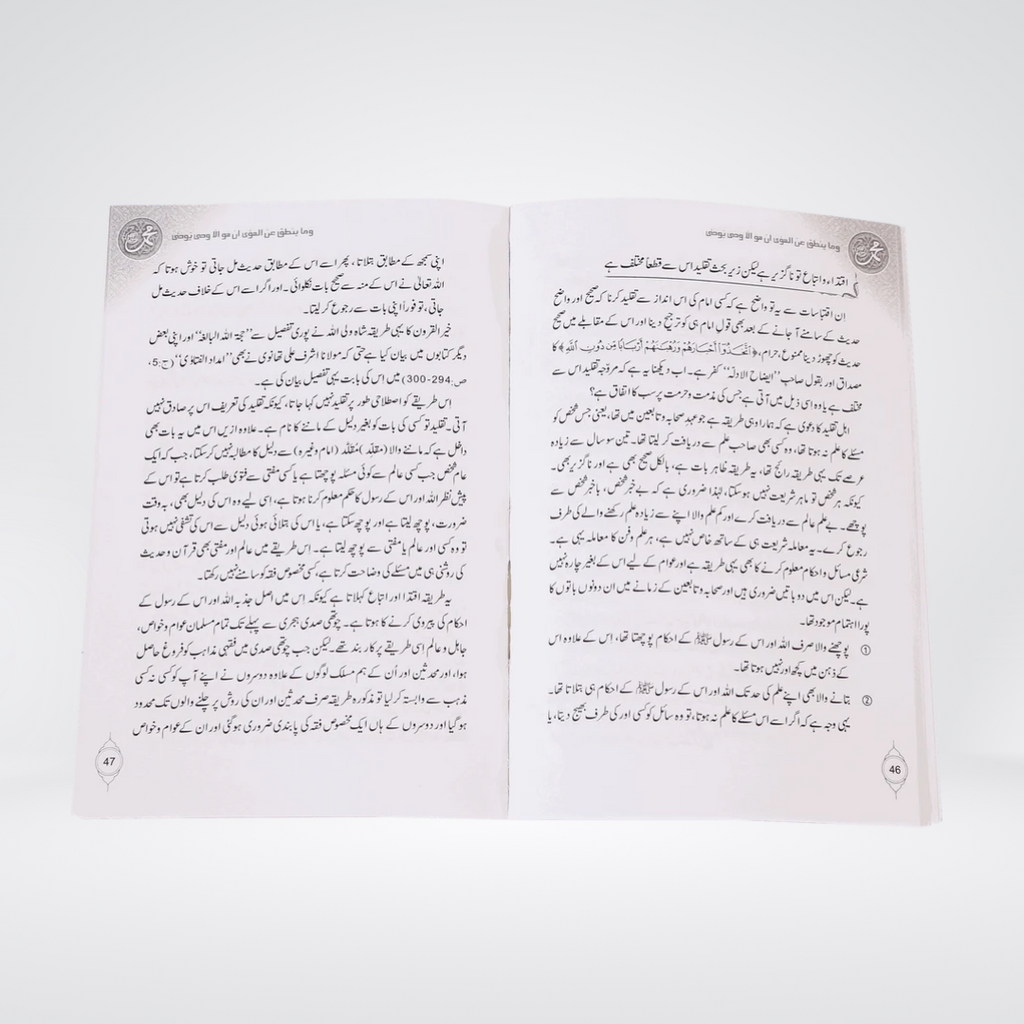 وما ينطق عن الهوى ان هو الا وحى يوحى
اقتداء و اتباع تو ناگزیر ہے لیکن زیرِ بحث تقلید اس سے قطعاً مختلف ہے
ان اقتباسات سے یہ تو واضح ہے کہ کسی امام کی اس انداز سے تقلید کرنا کہ صحیح اور واضح
حدیث کے سامنے آ جانے کے بعد بھی قول امام ہی کو ترجیح دینا اور اس کے مقابلے میں صحیح
حدیث کو چھوڑ دینا ممنوع، حرام، ﴿اتَّخَذُوٓا۟ أَحْبَارَهُمْ وَرُهْبَـٰنَهُمْ أَرْبَابًا مِّن دُونِ ٱللَّهِ﴾ کا
مصداق اور بقول صاحب ’’ایضاح الادلہ‘‘ کفر ہے۔ اب دیکھنا یہ ہے کہ مروّجہ تقلید اس سے
مختلف ہے یا وہ اسی ذیل میں آتی ہے جس کی مذمت و حرمت پر سب کا اتفاق ہے؟
اہل تقلید کا دعویٰ ہے کہ ہمارا وہی طریقہ ہے جو عہدِ صحابہ و تابعین میں تھا، یعنی جس شخص کو
مسئلے کا علم نہ ہوتا تھا، وہ کسی بھی صاحب علم سے دریافت کر لیتا تھا۔ تین سو سال سے زیادہ
عرصے تک یہی طریقہ رائج تھا، یہ طریقہ ظاہر بات ہے، بالکل صحیح بھی ہے اور ناگزیر بھی۔
کیونکہ ہر شخص تو ماہر شریعت نہیں ہو سکتا، لہٰذا ضروری ہے کہ بے خبر شخص، باخبر شخص سے
پوچھے۔ بے علم عالم سے دریافت کرے اور کم علم والا اپنے سے زیادہ علم رکھنے والے کی طرف
رجوع کرے۔ یہ معاملہ شریعت ہی کے ساتھ خاص نہیں ہے، ہر علم و فن کا معاملہ یہی ہے۔
شرعی مسائل و احکام معلوم کرنے کا بھی یہی طریقہ ہے اور عوام کے لیے اس کے بغیر چارہ نہیں
ہے۔ لیکن اس میں دو باتیں ضروری ہیں اور صحابہ و تابعین کے زمانے میں ان دونوں باتوں کا
پورا اہتمام موجود تھا۔
① پوچھنے والا صرف اللہ اور اس کے رسول ﷺ کے احکام پوچھتا تھا، اِس کے علاوہ اس
کے ذہن میں کچھ اور نہیں ہوتا تھا۔
② بتانے والا بھی اپنے علم کی حد تک اللہ اور اس کے رسول ﷺ کے احکام ہی بتلاتا تھا۔
یہی وجہ ہے کہ اگر اسے اس مسئلے کا علم نہ ہوتا، تو وہ سائل کو کسی اور کی طرف بھیج دیتا، یا
46
وما ينطق عن الهوى ان هو الا وحى يوحى
اپنی سمجھ کے مطابق بتلاتا، پھر اسے اس کے مطابق حدیث مل جاتی تو خوش ہوتا کہ
اللہ تعالیٰ نے اس کے منہ سے صحیح بات نکلوائی۔ اور اگر اسے اس کے خلاف حدیث مل
جاتی، تو فوراً اپنی بات سے رجوع کر لیتا۔
خیر القرون کا یہی طریقہ شاہ ولی اللہ نے پوری تفصیل سے ’’حجۃ اللہ البالغہ‘‘ اور اپنی بعض
دیگر کتابوں میں بیان کیا ہے حتی کہ مولانا اشرف علی تھانوی نے بھی ’’امداد الفتاوٰی‘‘ (ج:5،
ص:294-300) میں اس کی بابت یہی تفصیل بیان کی ہے۔
اِس طریقے کو اصطلاحی طور پر تقلید نہیں کہا جاتا، کیونکہ تقلید کی تعریف اس پر صادق نہیں
آتی۔ تقلید تو کسی کی بات کو بغیر دلیل کے ماننے کا نام ہے۔ علاوہ ازیں اس میں یہ بات بھی
داخل ہے کہ ماننے والا (مقلِّد) مُقلَّد (امام وغیرہ) سے دلیل کا مطالبہ نہیں کر سکتا، جب کہ ایک
عام شخص جب کسی عالم سے کوئی مسئلہ پوچھتا ہے یا کسی مفتی سے فتویٰ طلب کرتا ہے تو اس کے
پیشِ نظر اللہ اور اس کے رسول کا حکم معلوم کرنا ہوتا ہے، اِسی لیے وہ اس کی دلیل بھی، بہ وقت
ضرورت، پوچھ لیتا ہے اور پوچھ سکتا ہے، یا اس کی بتلائی ہوئی دلیل سے اس کی تشفی نہیں ہوتی
تو وہ کسی اور عالم یا مفتی سے پوچھ لیتا ہے۔ اِس طریقے میں عالم اور مفتی بھی قرآن و حدیث
کی روشنی ہی میں مسئلے کی وضاحت کرتا ہے، کسی مخصوص فقہ کو سامنے نہیں رکھتا۔
یہ طریقہ اقتدا اور اتباع کہلاتا ہے کیونکہ اِس میں اصل جذبہ اللہ اور اس کے رسول کے
احکام کی پیروی کرنے کا ہوتا ہے۔ چوتھی صدی ہجری سے پہلے تک تمام مسلمان عوام و خواص،
جاہل و عالم اِسی طریقے پر کاربند تھے۔ لیکن جب چوتھی صدی میں فقہی مذاہب کو فروغ حاصل
ہوا، اور محدثین اور اُن کے ہم مسلک لوگوں کے علاوہ دوسروں نے اپنے آپ کو کسی نہ کسی
مذہب سے وابستہ کر لیا تو مذکورہ طریقہ صرف محدثین اور ان کی روش پر چلنے والوں تک محدود
ہو گیا اور دوسروں کے ہاں ایک مخصوص فقہ کی پابندی ضروری ہو گئی اور ان کے عوام و خواص
47